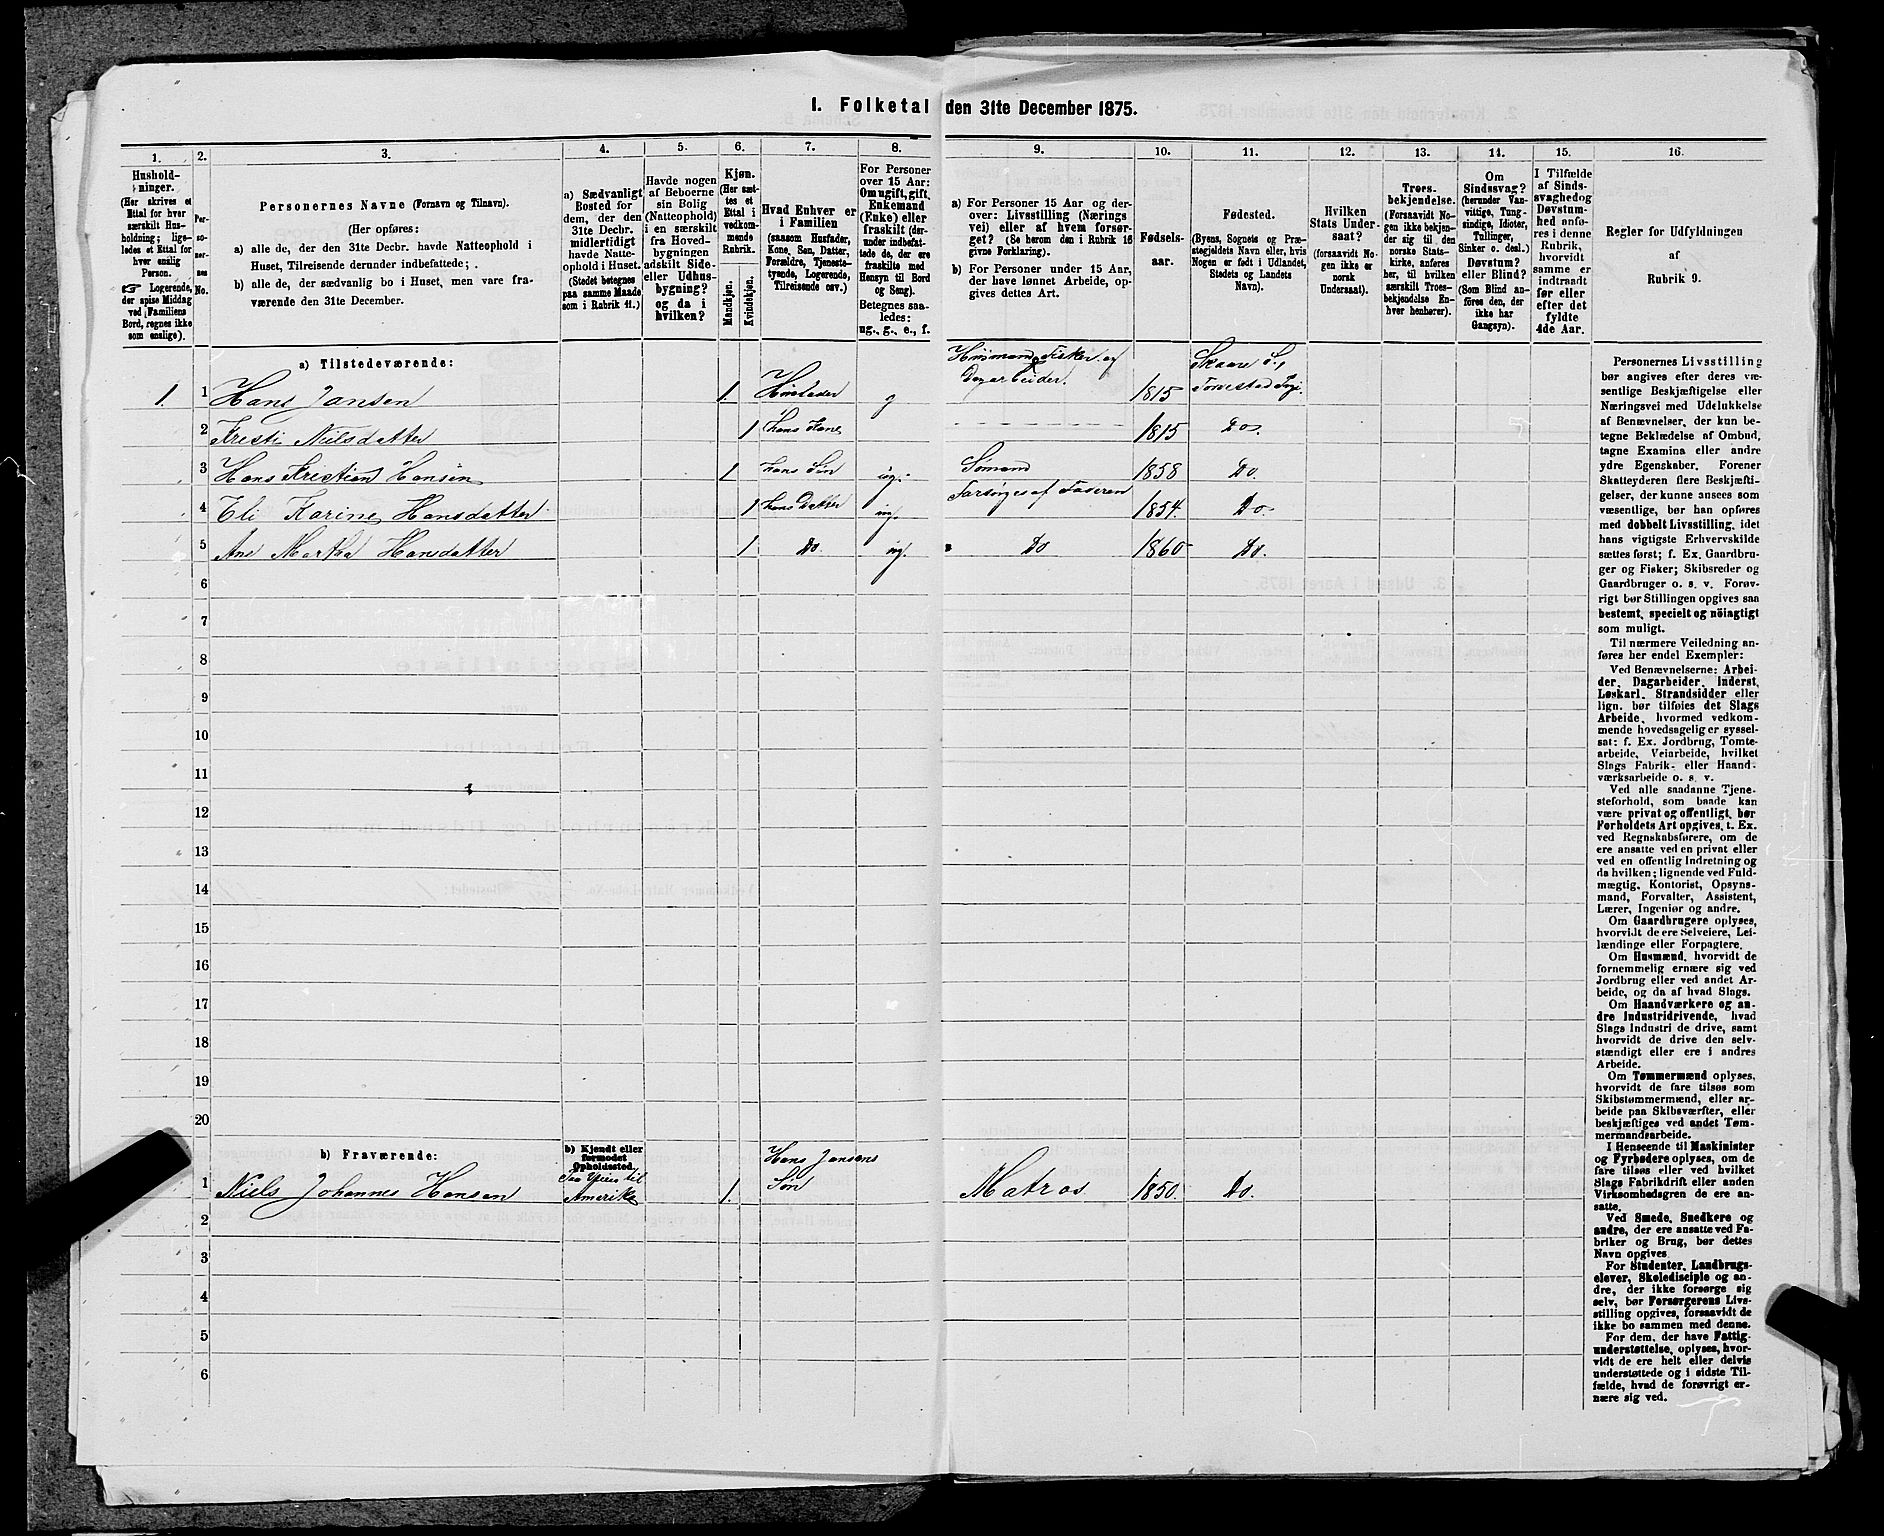 1. Folketal den 31te December 1875.
1.
Hushold-
ninger.
(Her skrives et
Ettal for hver
særskilt Hus-
holdning; lige-
ledes et Ettal for
hver enslig
Person.
☞ Logerende,
der spise Middag
ved Familiens
Bord, regnes ikke
som enslige).
2.
Per-
so-
ner-
nes
No.
3.
Personernes Navne (Fornavn og Tilnavn).
(Her opføres:
a) alle de, der den 31te Decbr. havde Natteophold i
Huset, Tilreisende derunder indbefattede;
b) alle de, der sædvanlig bo i Huset, men vare fra-
værende den 31te December.
4.
a) Sædvanligt
Bosted for
dem, der den
31te Decbr.
midlertidigt
havde Natte-
ophold i Huset.
(Stedet betegnes
paa samme Maade
som i Rubrik 11.)
5.
Havde nogen
af Beboerne
sin Bolig
(Natteophold)
i en særskilt
fra Hoved-
bygningen
adskilt Side-
eller Udhus-
bygning?
og da i
hvilken?
6.
Kjøn.
(Her sæt-
tes et
Ettal i
vedkom-
mende
Rubrik.
Mandkjøn.
Kvindekjøn.
7.
Hvad Enhver er
i Familien
(saasom Husfader,
Kone, Søn, Datter,
Forældre, Tjeneste-
tyende, Logerende,
Tilreisende osv.)
8.
For Personer
over 15 Aar:
Om ugift, gift,
Enkemand
(Enke) eller
fraskilt (der-
under indbefat-
tede de, der ere
fraskilte med
Hensyn til Bord
og Seng).
Betegnes saa-
ledes:
ug., g., e., f.
9.
a) For Personer 15 Aar og der-
over: Livsstilling (Nærings
vei) eller af hvem forsør-
get? (Se herom den i Rubrik 16
givne Forklaring).
b) For Personer under 15 Aar,
der have lønnet Arbeide, op-
gives dettes Art.
10.
Fødsels-
aar.
11.
Fødested.
(Byens, Sognets og Præ-
stegjeldets Navn eller, hvis
Nogen er født i Udlandet,
Stedets og Landets
Navn).
12.
Hvilken
Stats Under-
saat?
(forsaavidt No-
gen ikke er
norsk
Undersaat).
13.
Troes-
bekjendelse.
(Forsaavidt No-
gen ikke bekjen-
der sig til den
norske Stats-
kirke, anføres
her, til hvilken
særskilt Troes-
bekjendelse En-
hver henhører).
14.
Om
Sindssvag?
(herunder Van-
vittige, Tung-
sindige, Idioter,
Tullinger,
Sinker o. desl.)
Døvstum?
eller Blind?
(Som Blind an-
føres den, der
ikke har
Gangsyn).
15.
I Tilfælde
af Sinds-
svaghed og
Døvstum-
hed anfø-
res i denne
Rubrik,
hvorvidt
samme er
indtraadt
før eller
efter det
fyldte
4de Aar.
16.
Regler for Udfyldningen
af
Rubrik 9.
a) Tilstedeværende:
1. 1 Hans Jansen 1 Husfader g Husmand Fisker og Dagarbeider. 1815 Skaare S., Torvestad Prgj.
2 Kresti Nielsdatter 1 hans Kone 1815 Do.
3 Hans Kristian Hansen 1 hans Søn ug. Sømand 1858 Do.
4 Eli Karine Hansdatter 1 hans Datter ug. Forsørges af Faderen 1854. Do.
5 Ane Martha Hansdatter 1 Do. ug. Do 1860 Do.
6
7
8
9
10
11
12
13
14
15
16
17
18
19
20
b) Fraværende:
b) Kjendt eller
formodet
Opholdssted.
1 Niels Johannes Hansen Paa Reise til Amerika 1. Hans Jansens Søn Matros 1850. Do.
2
3
4
5
6
Personernes Livsstilling
bør angives efter deres væ-
sentlige Beskjæftigelse eller
Næringsvei med Udelukkelse
af Benævnelser, der kun be-
tegne Beklædelse af Ombud,
tagne Examina eller andre
ydre Egenskaber. Forener
Skatteyderen flere Beskjæfti-
gelser, der kunne ansees som
væsentlige, bør han opføres
med dobbelt Livsstilling, idet
hans vigtigste Erhvervskilde
sættes først; f. Ex. Gaardbru-
ger og Fisker; Skibsreder og
Gaardbruger o. s. v. Forøv-
rigt bør Stillingen opgives saa
bestemt, specielt og nöiagtigt
som muligt.
Til nærmere Veiledning an-
føres her endel Exempler:
Ved Benævnelserne: Arbei-
der, Dagarbeider, Inderst,
Løskarl, Strandsidder eller
lign. bør tilføies det Slags
Arbeide, hvormed vedkom-
mende hovedsagelig er syssel-
sat: f. Ex. Jordbrug, Tomte-
arbeide, Veiarbeide, hvilket
Slags Fabrik- eller Haand-
værksarbeide o. s. v.
Ved alle saadanne Tjene-
steforhold, som baade kan
være privat og offentligt, bør
Forholdets Art opgives, t. Ex.
ved Regnskabsførere, om de
ere ansatte ved en privat eller
ved en offentlig Indretning og
da hvilken; lignende ved Fuld-
mægtig, Kontorist, Opsyns-
mand, Forvalter, Assistent,
Lærer, Ingeniør og andre.
Om Gaardbrugere oplyses,
hvorvidt de ere Selveiere, Lei-
lændinge eller Forpagtere.
Om Husmænd, hvorvidt de
fornemmelig ernære sig ved
Jordbrug eller ved andet Ar-
beide, og da af hvad Slags.
Om Haandværkere og an-
dre Industridrivende, hvad
Slags Industri de drive, samt
hvorvidt de drive den selv-
stændigt eller ere i andres
Arbeide.
Om Tømmermænd oplyses,
hvorvidt de fare tilsøs som
Skibstømmermænd, eller ar-
beide paa Skibsværfter, eller
beskjæftiges ved andet Tøm-
mermandsarbeide.
I Henseende til Maskinister
og Fyrbødere oplyses, om de
fare tilsøs eller ved hvilket
Slags Fabrikdrift eller anden
Virksomhedsgren de ere an-
satte.
Ved Smede, Snedkere og
andre, der ere ansatte ved Fa-
briker og Brug, bør dettes
Navn opgives
For Studenter, Landbrugs-
elever, Skoledisciple og an-
dre, der ikke forsørge sig
selv, bør Forsørgerens Livs-
stilling opgives, forsaavidt de
ikke bo sammen med denne.
For dem, der have Fattig-
understøttelse, oplyses, hvor-
vidt de ere helt eller delvis
understøttede og i sidste Til-
fælde, hvad de forøvrigt er-
nære sig ved.